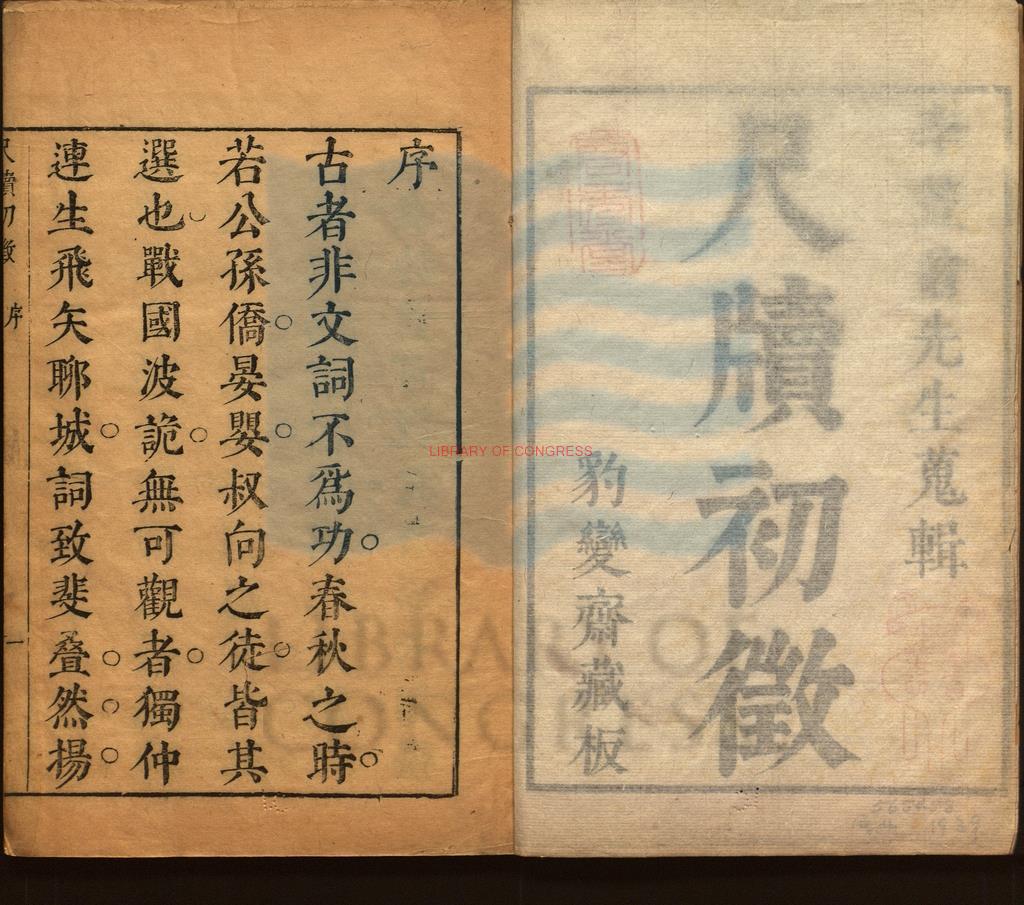 先生蒐輯
尺牘初徵
豹變齋藏板
序
古者非文詞不爲功春秋之時
若公孫僑晏嬰叔向之徒皆其
選也戰國波詭無可觀者獨仲
連生飛矢聊城詞致斐疊然揚
尺牘初徵 序 一
LIBRARY OF CONGRESS